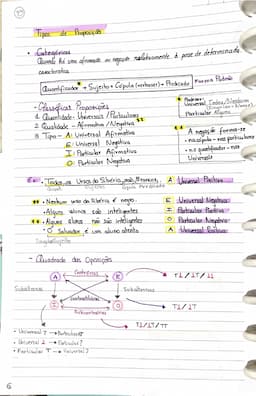 Tipos de Proposição
• Categóricas
Quando há uma afirmação ou negação relativamente à posse de determinada característica
Quantificador* + Sujeito + Cópula (verbo ser) + Predicado
Forma Padrão
- Classificar Proposições
1. Quantidade: Universais / Particulares
2. Qualidade - Afirmativa / Negativa **
3. Tipo - A: Universal Afirmativa
E: Universal Negativa
I: Particular Afirmativa
O: Particular Negativa
* Podem ser:
Universal
Particular Alguns
** A negação forma-se
• na cópula - nas particulares
• no quantificador - nas Universais
Ex: • Todos os Ursos da Sibéria são Brancos,
A Universal Positiva
Quant. Sujeito Cópula Predicado
** • Nenhum urso da Sibéria é negro.
E Universal Negativa
• Alguns alunos são inteligentes
I Particular Positiva
** • Alguns alunos não são inteligentes
O Particular Negativa
• O Salvador é um aluno atento
A Universal Positiva
- Quadrado das Oposições
A Contrárias E
Subalternas Contraditórias Subalternas
I Subcontrárias O
• Universal T → Particular T
• Universal ⊥ → Particular ?
• Particular T → Universal ?
6